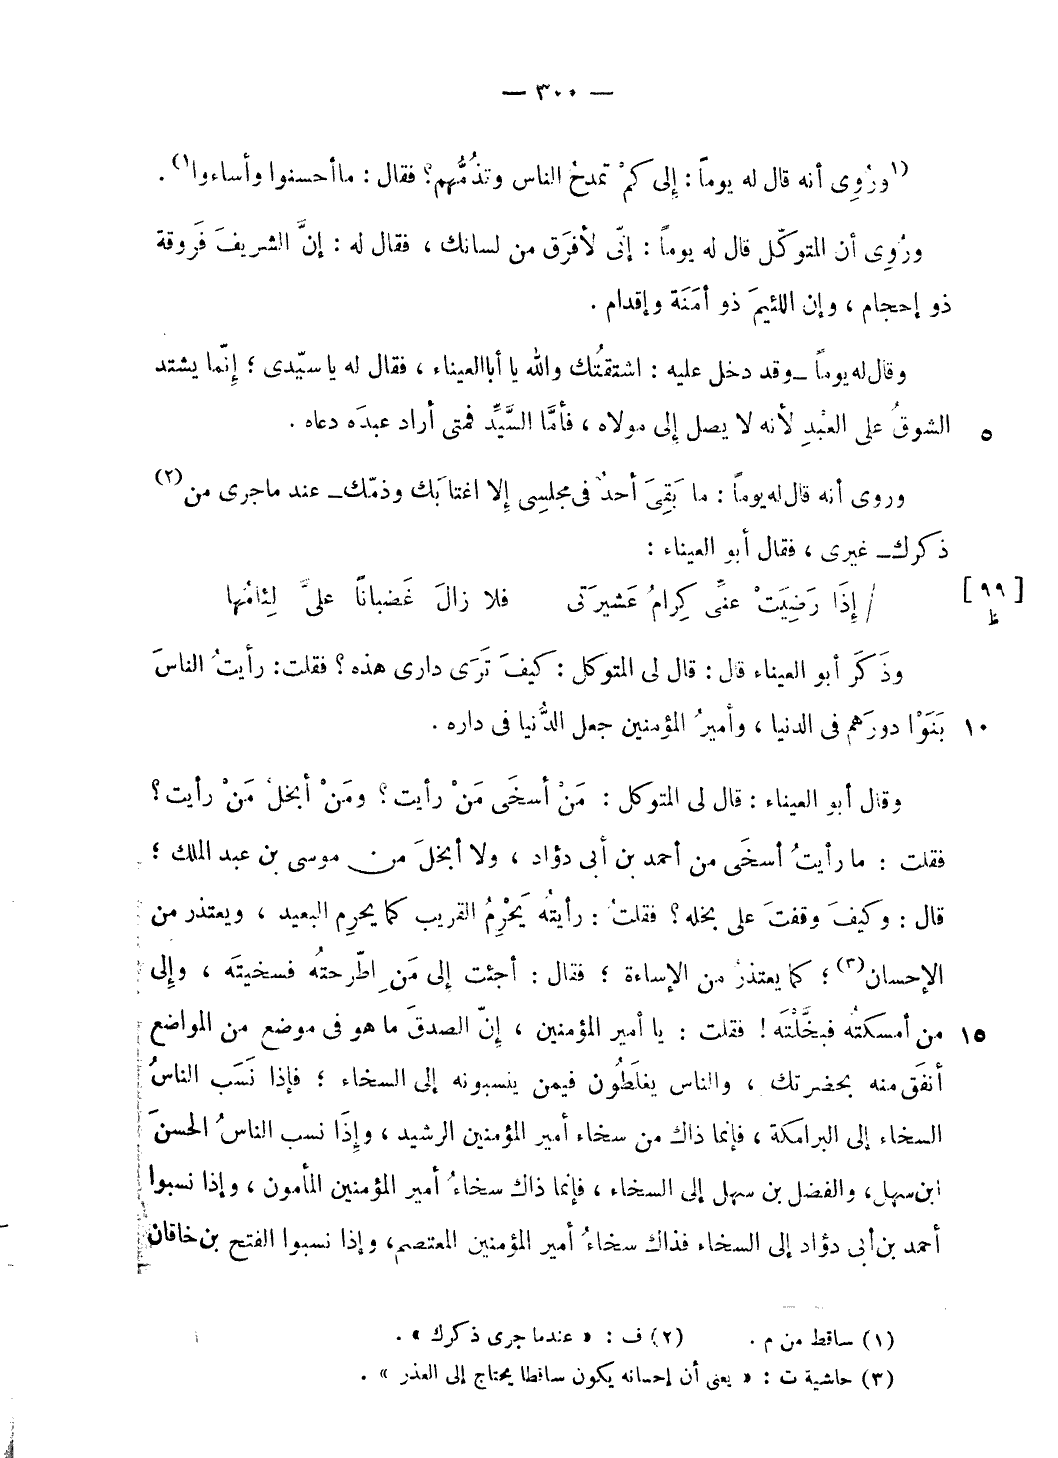 — ٣٠٠ —
(١ورُوِى أنه قال له يوماً : إِلى كمْ تمدحُ الناس وتذُمُّهم؟ فقال : ماأحسنوا وأساءوا١) .
ورُوِى أن المتوكّل قال له يوماً : إنّى لأفرَق من لسانك ، فقال له : إنَّ الشريفَ فَروقة
ذو إحجام ، وإن اللئيمَ ذو أمَنَة وإقدام .
وقال له يوماً ــ وقد دخل عليه : اشتقتُك والله يا أبا العيناء ، فقال له يا سيّدى ؛ إِنّما يشتد
الشوقُ على العبْدِ لأنه لا يصل إلى مولاه ، فأمَّا السَّيِّدُ فمتى أراد عبدَه دعاه . ٥
وروى أنه قال له يوماً : ما بَقِىَ أحدٌ فى مجلسِى إلا اغتابَك وذمّك ــ عند ماجرى من (٢)
ذكرك ــ غيرى ، فقال أبو العيناء :
/ إِذَا رَضِيَتْ عنِّى كِرامُ عَشيرَتى فلا زالَ غَضباناً علىَّ لِئامُها [٩٩ ظ]
وذَكَرَ أبو العيناء قال : قال لى المتوكل : كيفَ تَرَى دارى هذه ؟ فقلت : رأيتُ الناسَ
بَنَوْا دورَهم فى الدنيا ، وأميرُ المؤمنين جعل الدُّنيا فى داره . ١٠
وقال أبو العيناء : قال لى المتوكل : مَنْ أسخَى مَنْ رأيت ؟ ومَنْ أبخلُ مَنْ رأيت ؟
فقلت : ما رأيتُ أسخَى من أحمد بن أبى دؤاد ، ولا أبخلَ من موسى بن عبد الملك ؛
قال : وكيفَ وقفتَ على بخله ؟ فقلتُ : رأيتُه يَحْرِمُ القريب كما يحرِم البعيد ، ويعتذر من
الإحسان (٣) ؛ كما يعتذرُ من الإساءة ؛ فقال : أجئت إلى مَن اطّرحتُه فسخيتَه ، وإلى
من أمسكتُه فبخَّلْتَه ! فقلت : يا أمير المؤمنين ، إنّ الصدقَ ما هو فى موضع من المواضع ١٥
أنفَق منه بحضرتك ، والناس يغلَطُون فيمن ينسبونه إلى السخاء ؛ فإذا نَسَب الناسُ
السخاء إلى البرامكة ، فإنما ذاك من سخاء أمير المؤمنين الرشيد ، وإِذَا نسب الناسُ الحسنَ
ابن سهل، والفضل بن سهل إلى السخاء ، فإنما ذاك سخاءُ أمير المؤمنين المأمون ، وإذا نسبوا
أحمد بن أبى دؤاد إلى السخاء فذاك سخاءُ أمير المؤمنين المعتصم، وإذا نسبوا الفتح بن خاقان
(١) ساقط من م . (٢) ف : « عندما جرى ذكرك » .
(٣) حاشية ت : « يعنى أن إحسانه يكون ساقطا يحتاج إلى العذر » .